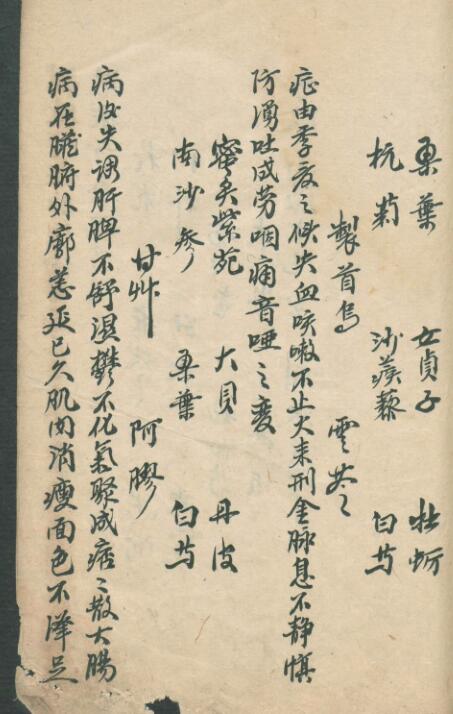 桑葉 女貞子 牡蛎
杭菊 沙蒺藜 白芍
製首烏 雲苓
症由季夏之候失血咳嗽不止火来刑金脉息不静慎
防湧吐成劳咽痛音哑之变
蜜炙紫苑 大貝 丹皮
南沙参 桑葉 白芍
甘艸 阿膠
病後失調肝脾不舒濕鬱不化氣聚成痞〻散大腸
病在臟腑外廓恙延已久肌肉消瘦面色不澤足